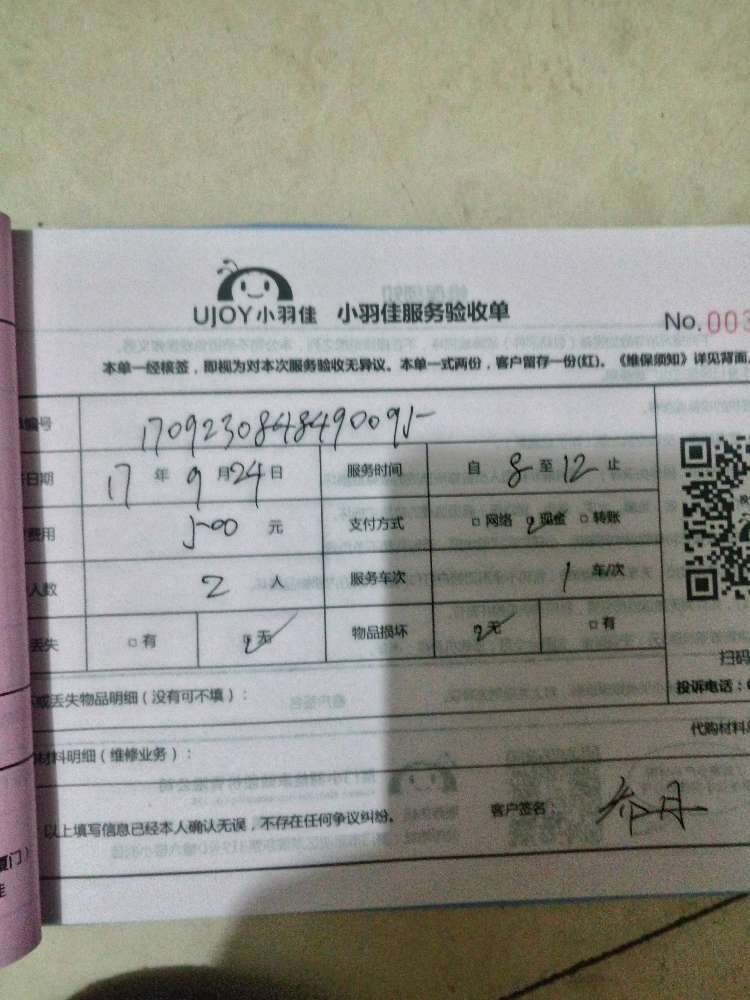 UJOY小羽佳 小羽佳服务验收单
No.003
本单一经核签，即视为对本次服务验收无异议。本单一式两份，客户留存一份(红)。《维保须知》详见背面。
编号 1709230848490095
日期 17年9月24日 服务时间 自8至12止
费用 500元 支付方式 □网络 现金 □转账
人数 2人 服务车次 1车/次
丢失 □有 无 物品损坏 无 □有
扫码
或丢失物品明细（没有可不填）： 投诉电话：
代购材料
材料明细（维修业务）：
以上填写信息已经本人确认无误，不存在任何争议纠纷。 客户签名：
厦门）